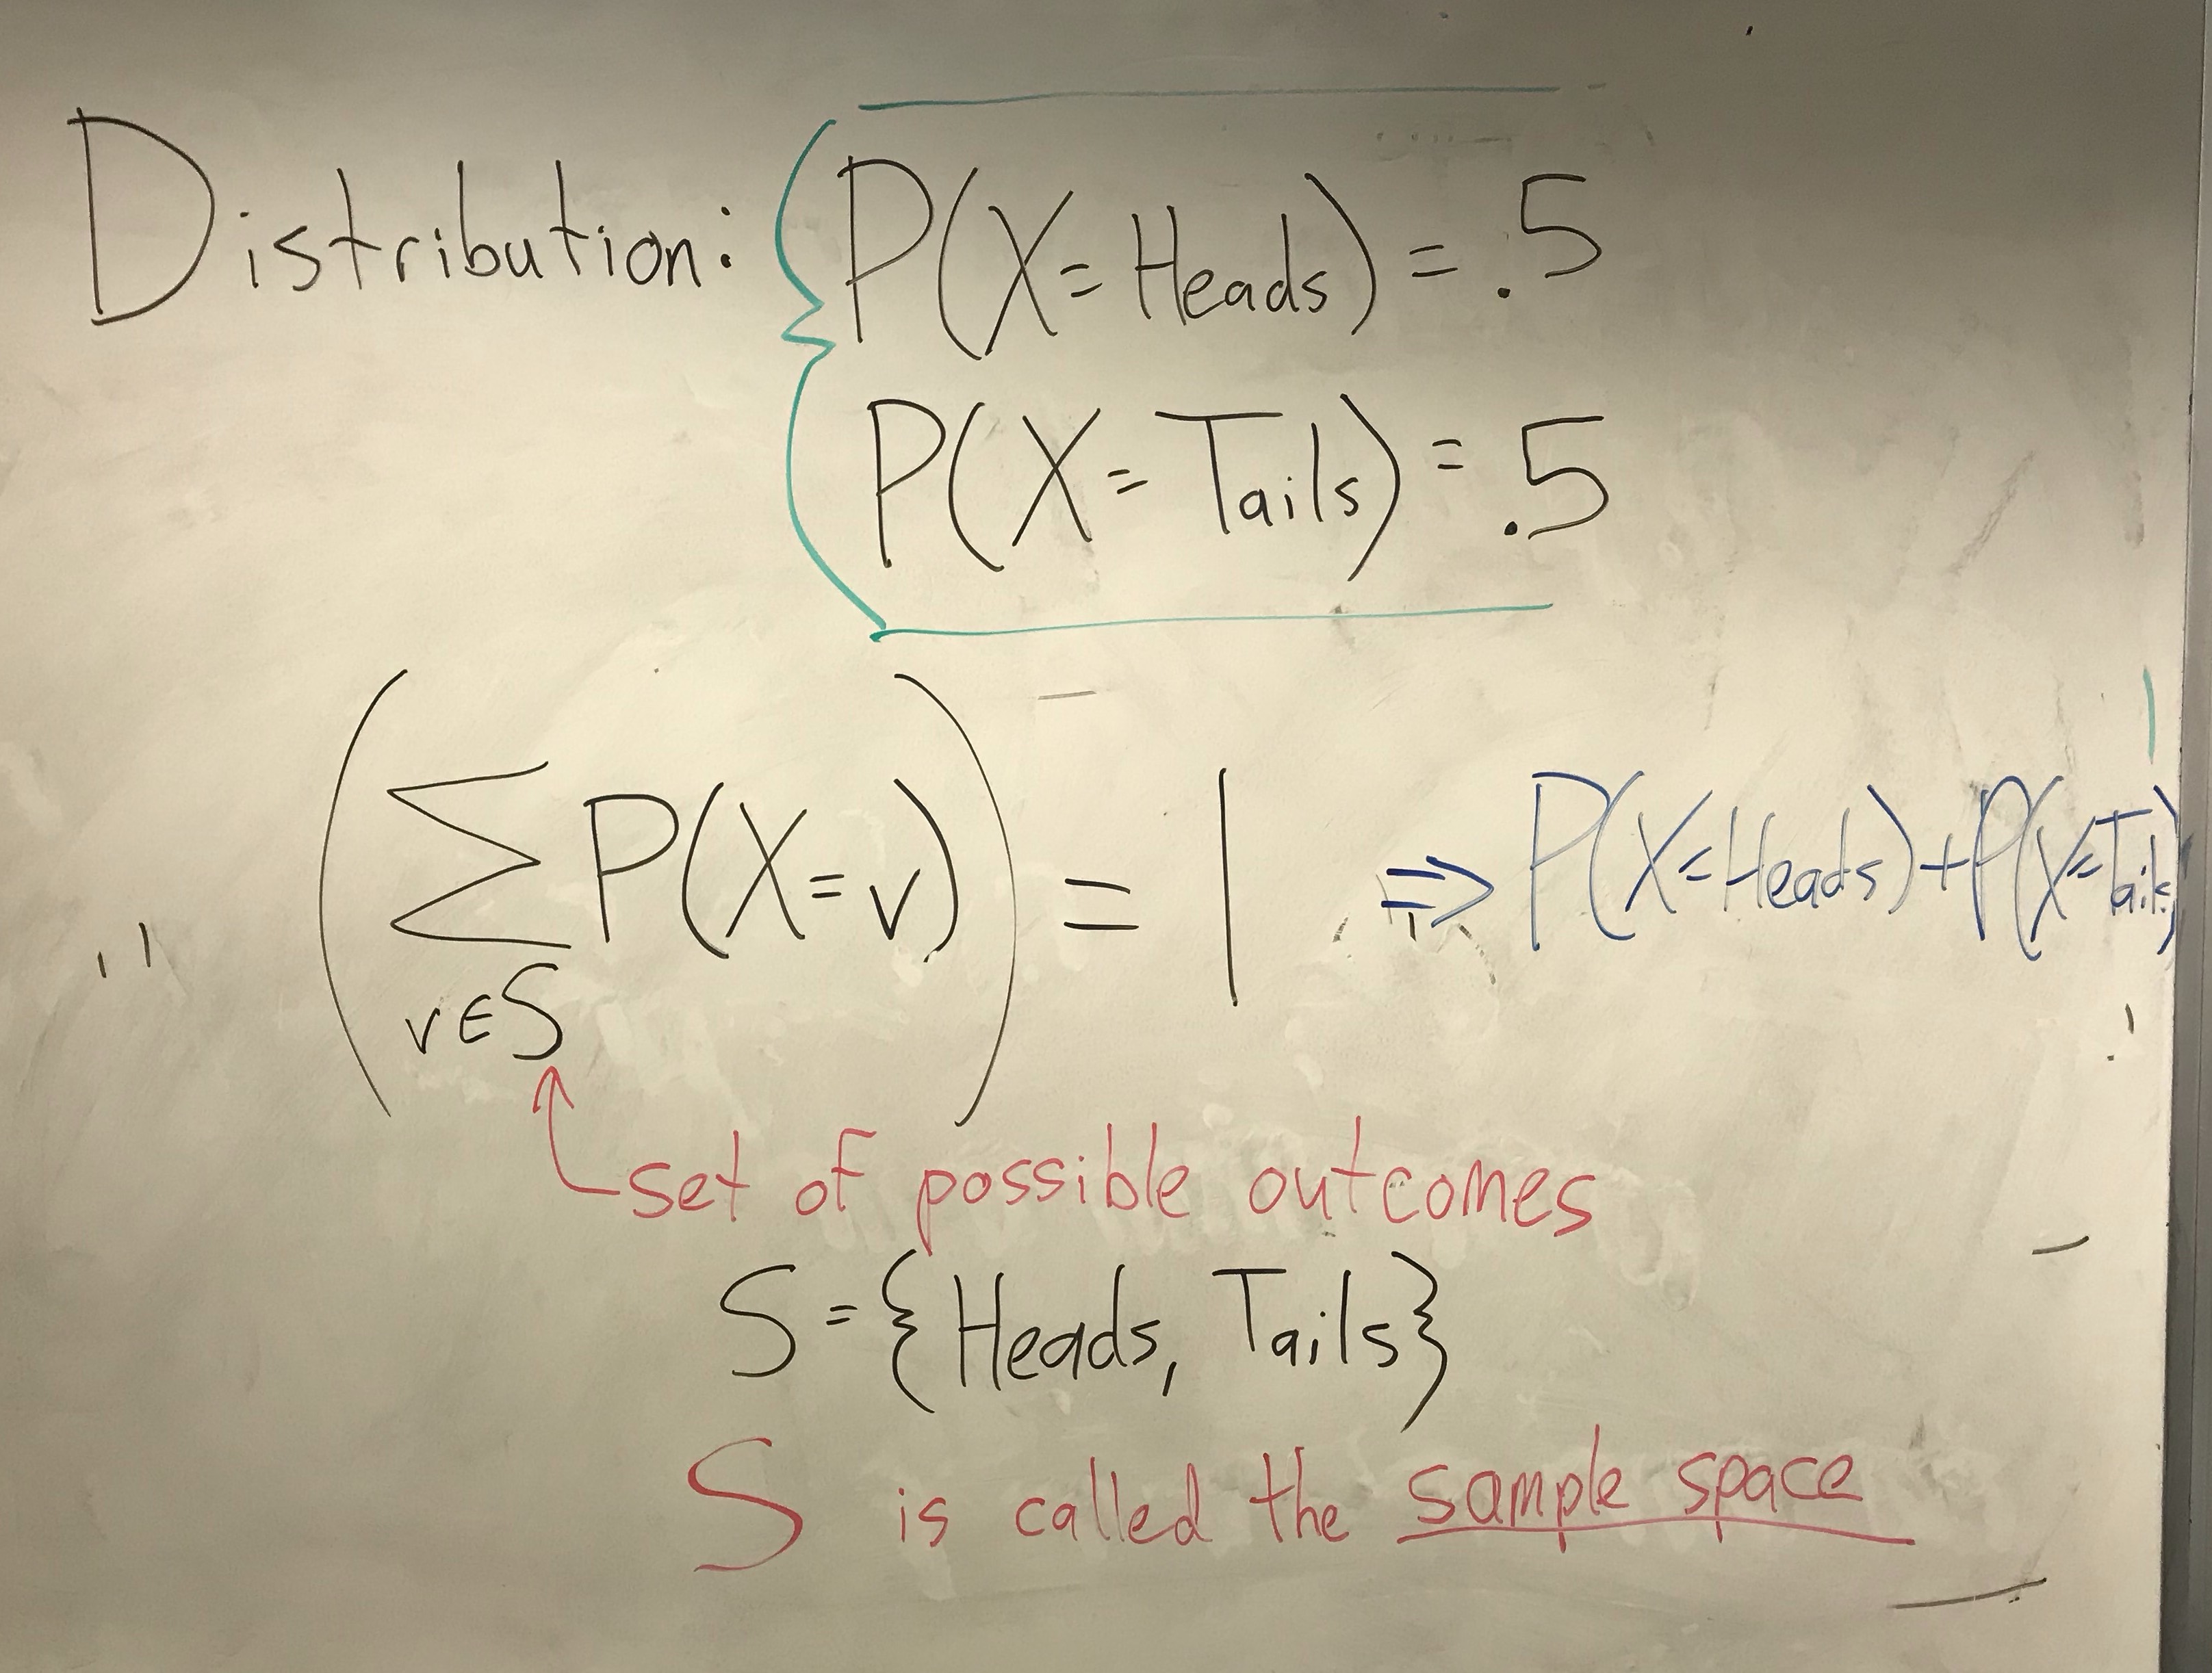 Distribution: { P(X=Heads) = .5
P(X=Tails) = .5
(∑ P(X=v)) = 1 ⇒ P(X=Heads)+P(X=Tails)
v∈S
set of possible outcomes
S={Heads, Tails}
S is called the sample space